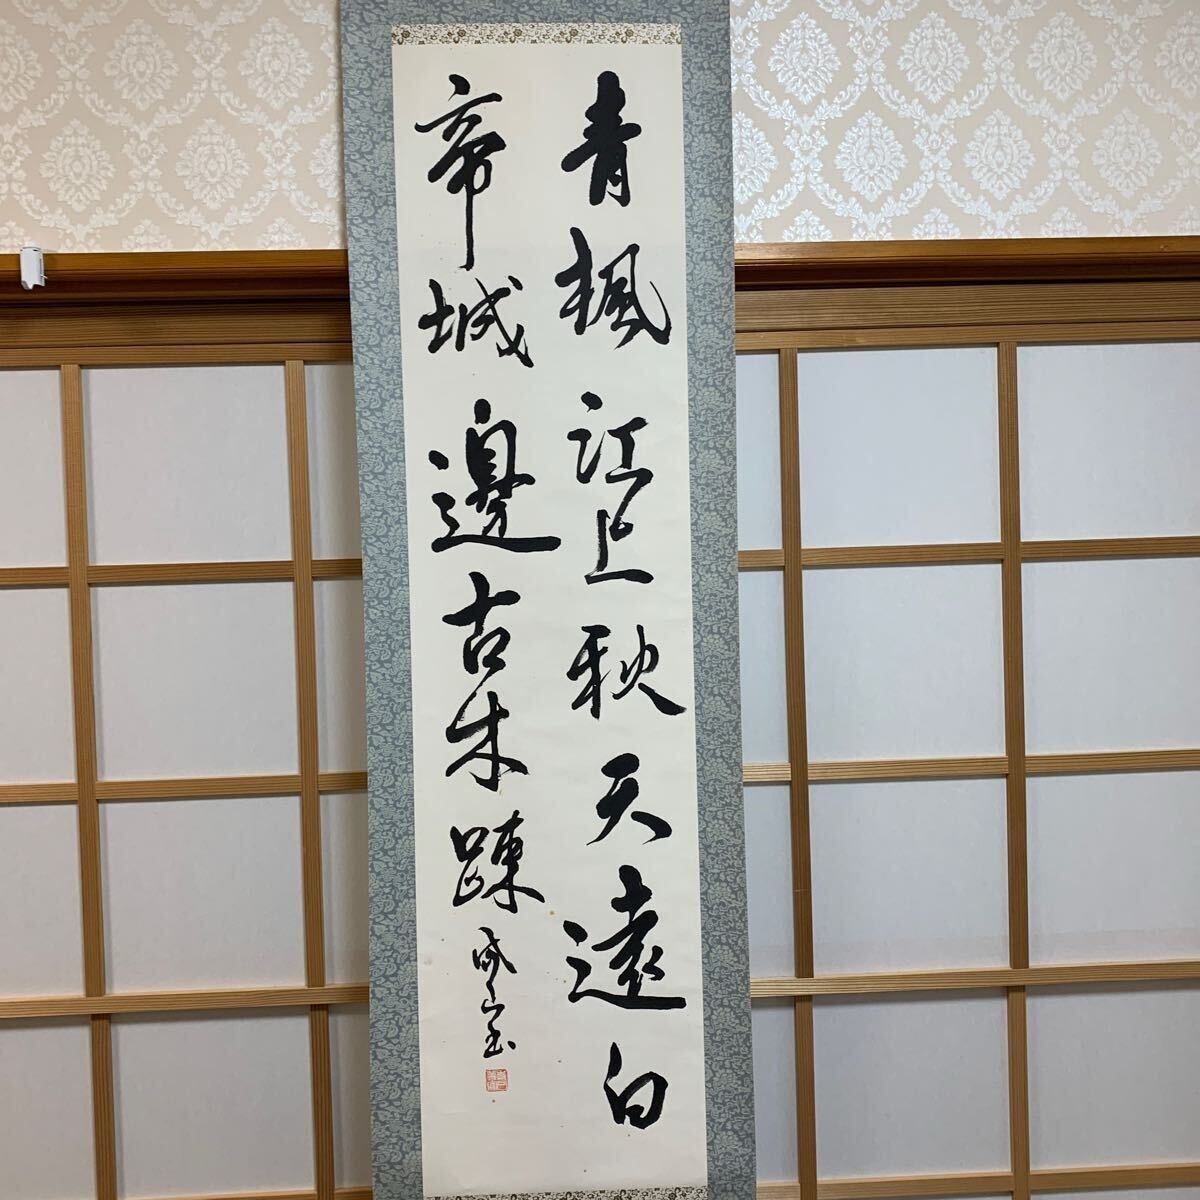 青楓江上秋天遠白
帝城邊古木疎